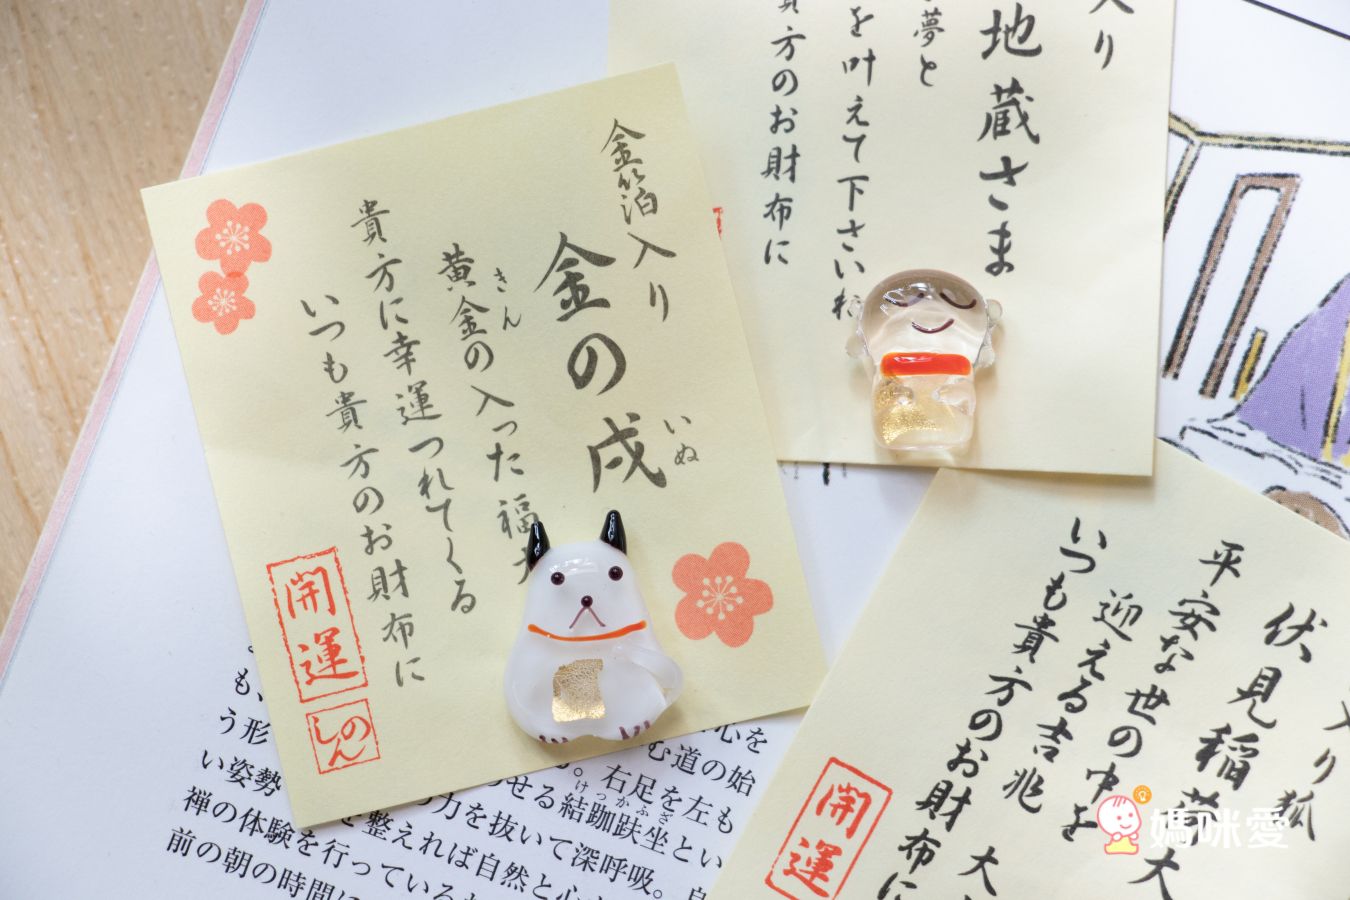 金箔入り
金の戌
いぬ
黄金の入った福
きん
貴方に幸運つれてくる
いつも貴方のお財布に
開運
しのん
入り
地蔵さま
夢と
を叶えて下さい
貴方のお財布に
入り狐
伏見稲荷大
平安な世の中を
迎える吉兆 大
いつも貴方のお財布に
開運
心を
む道の始
も、
う形
。右足を左も
い姿勢
のせる結跏趺坐とい
けっかふざ
禅の体験を
力を抜いて深呼吸。
前の朝の時間に
を整えれば自然と心
行っている
媽咪愛